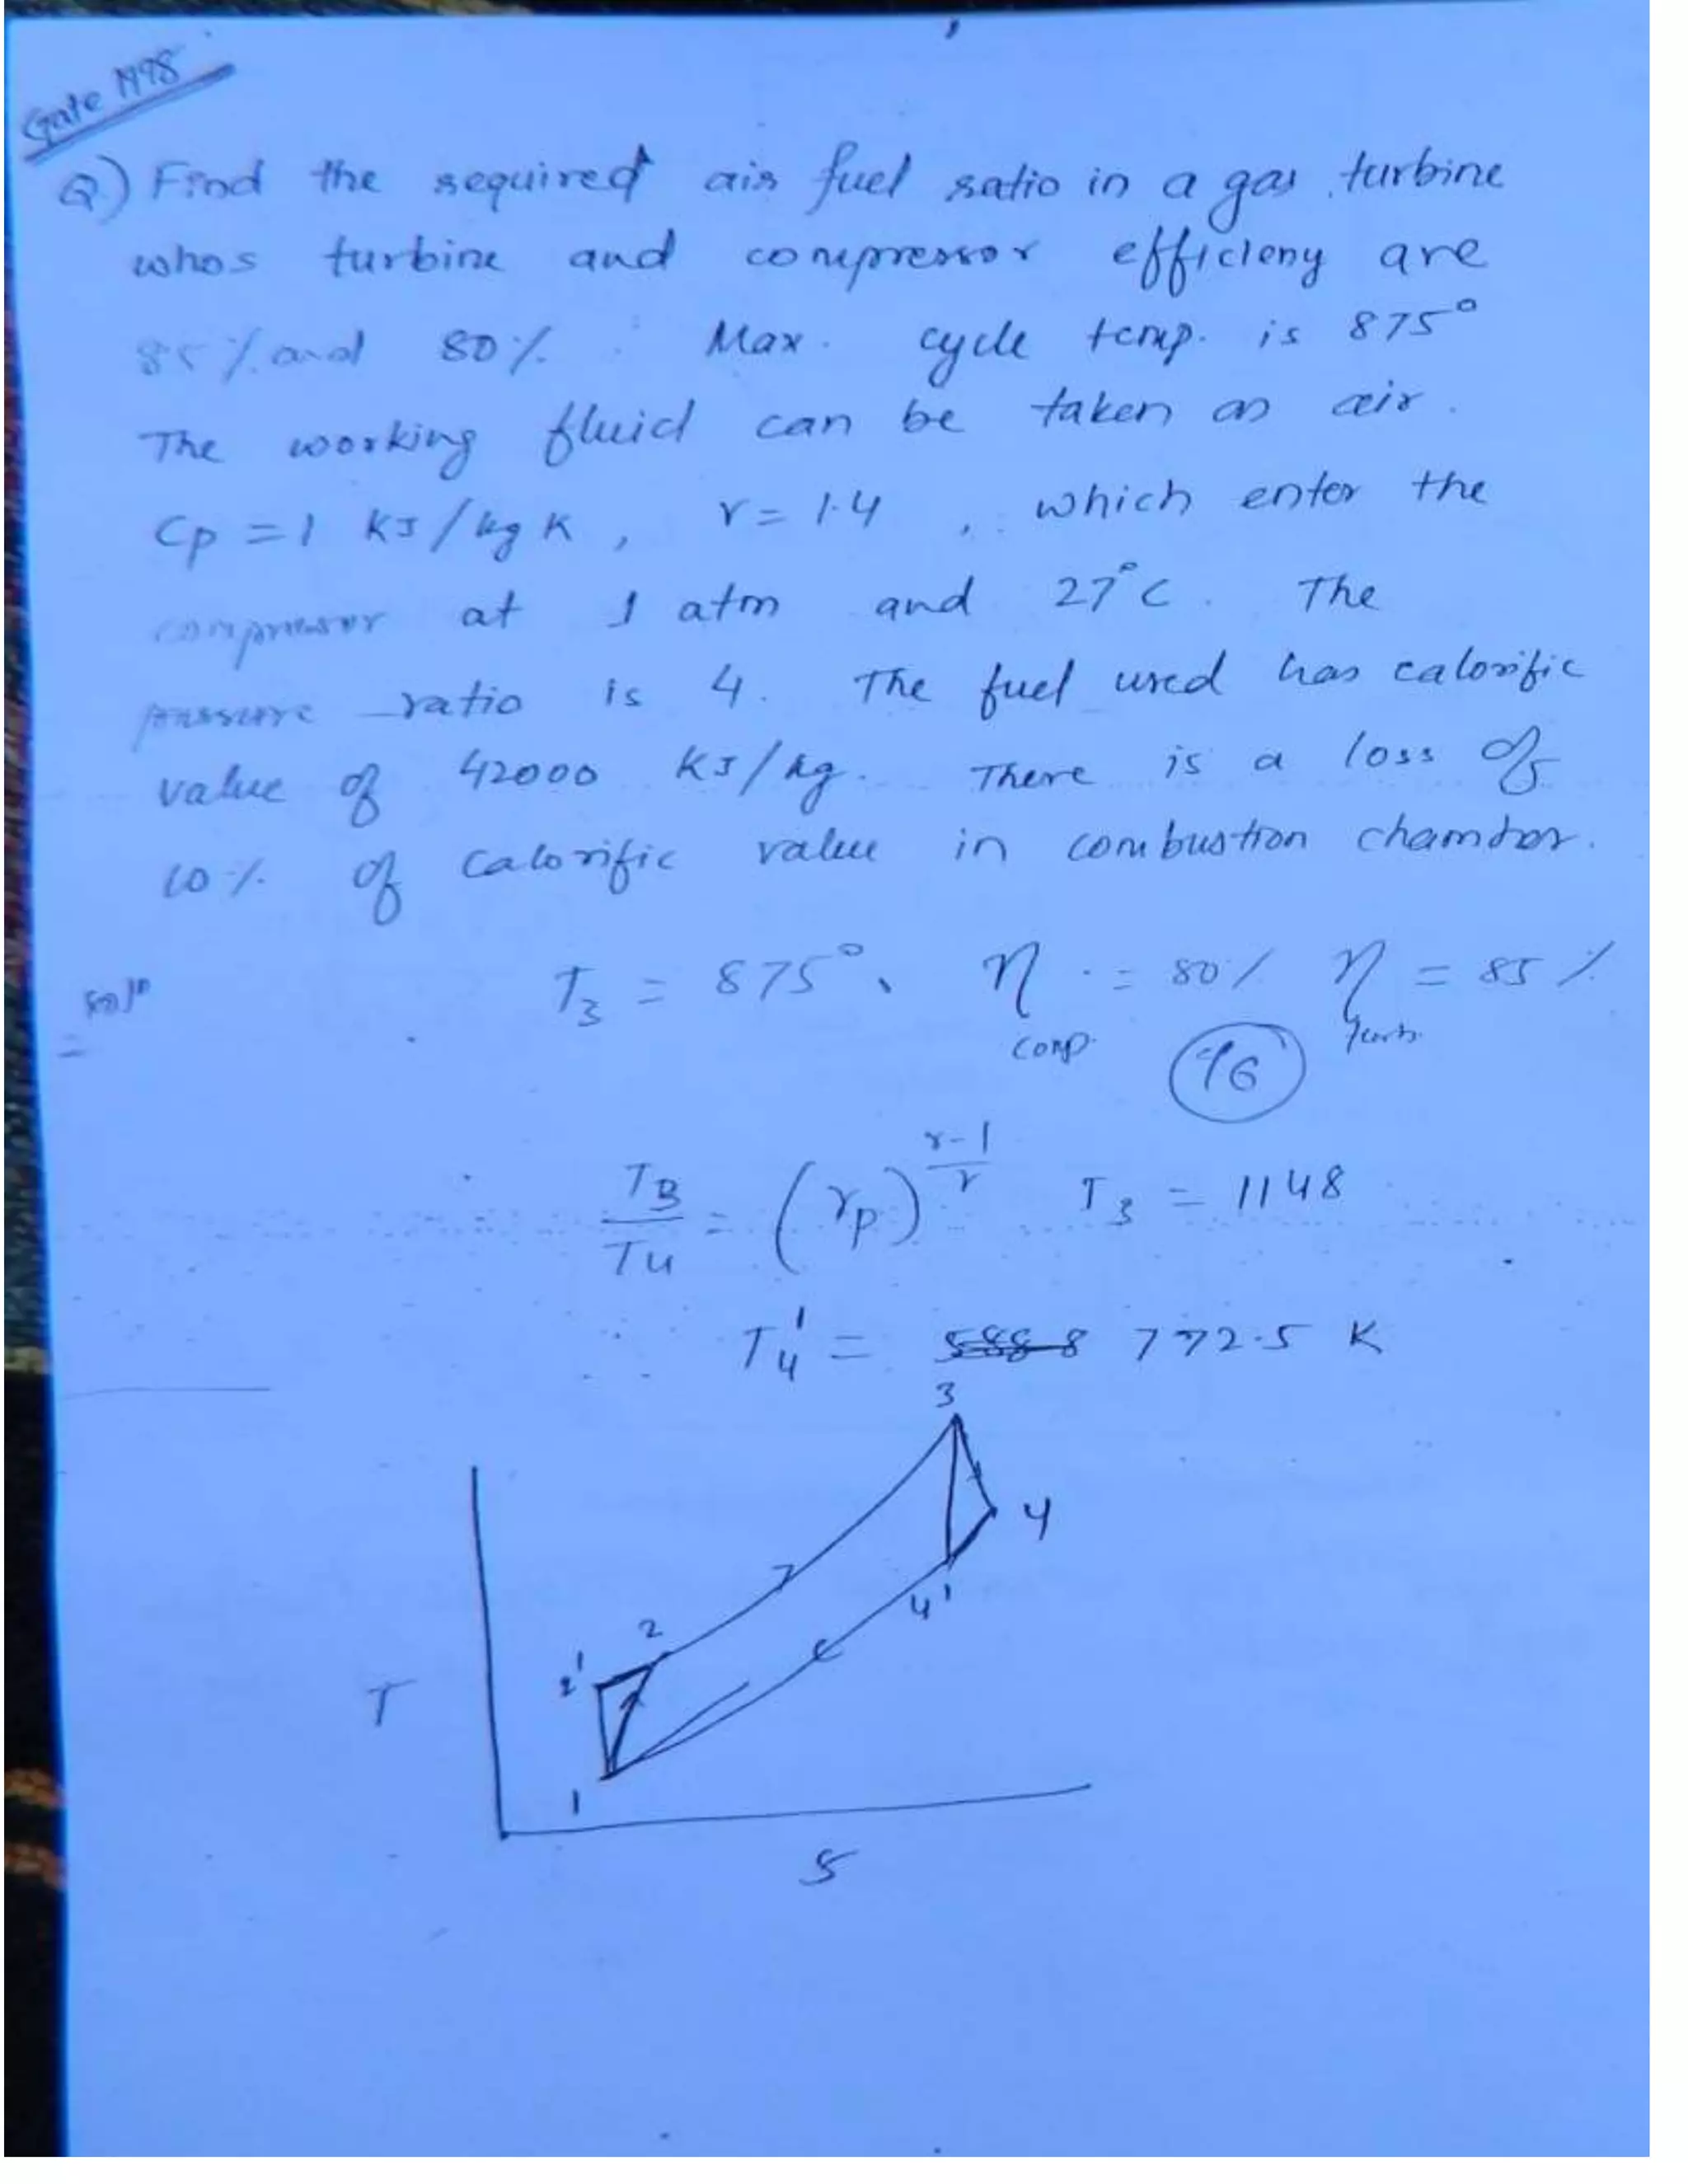 Gate 1998
Q.) Find the required air fuel ratio in a gas turbine
whos turbine and compressor efficieny are
85% and 80%. Max. cycle temp. is 875°
The working fluid can be taken as air.
Cp = 1 KJ/kg K, r = 1.4, which enter the
compressor at 1 atm and 27°C. The
pressure ratio is 4. The fuel used has calorific
value of 42000 KJ/kg. There is a loss of
10% of calorific value in combustion chambor.
Sol^n
= T3 = 875°, η comp. = 80% η turb. = 85%
96
T3/T4 = (rp)^(r-1)/r T3 = 1148
T4' = 772.5 K
3
4
4'
2
2'
T
1
S